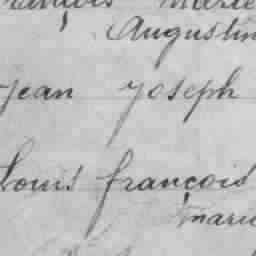 ançois Marie
Augustin
Jean Joseph
Louis françois
marie